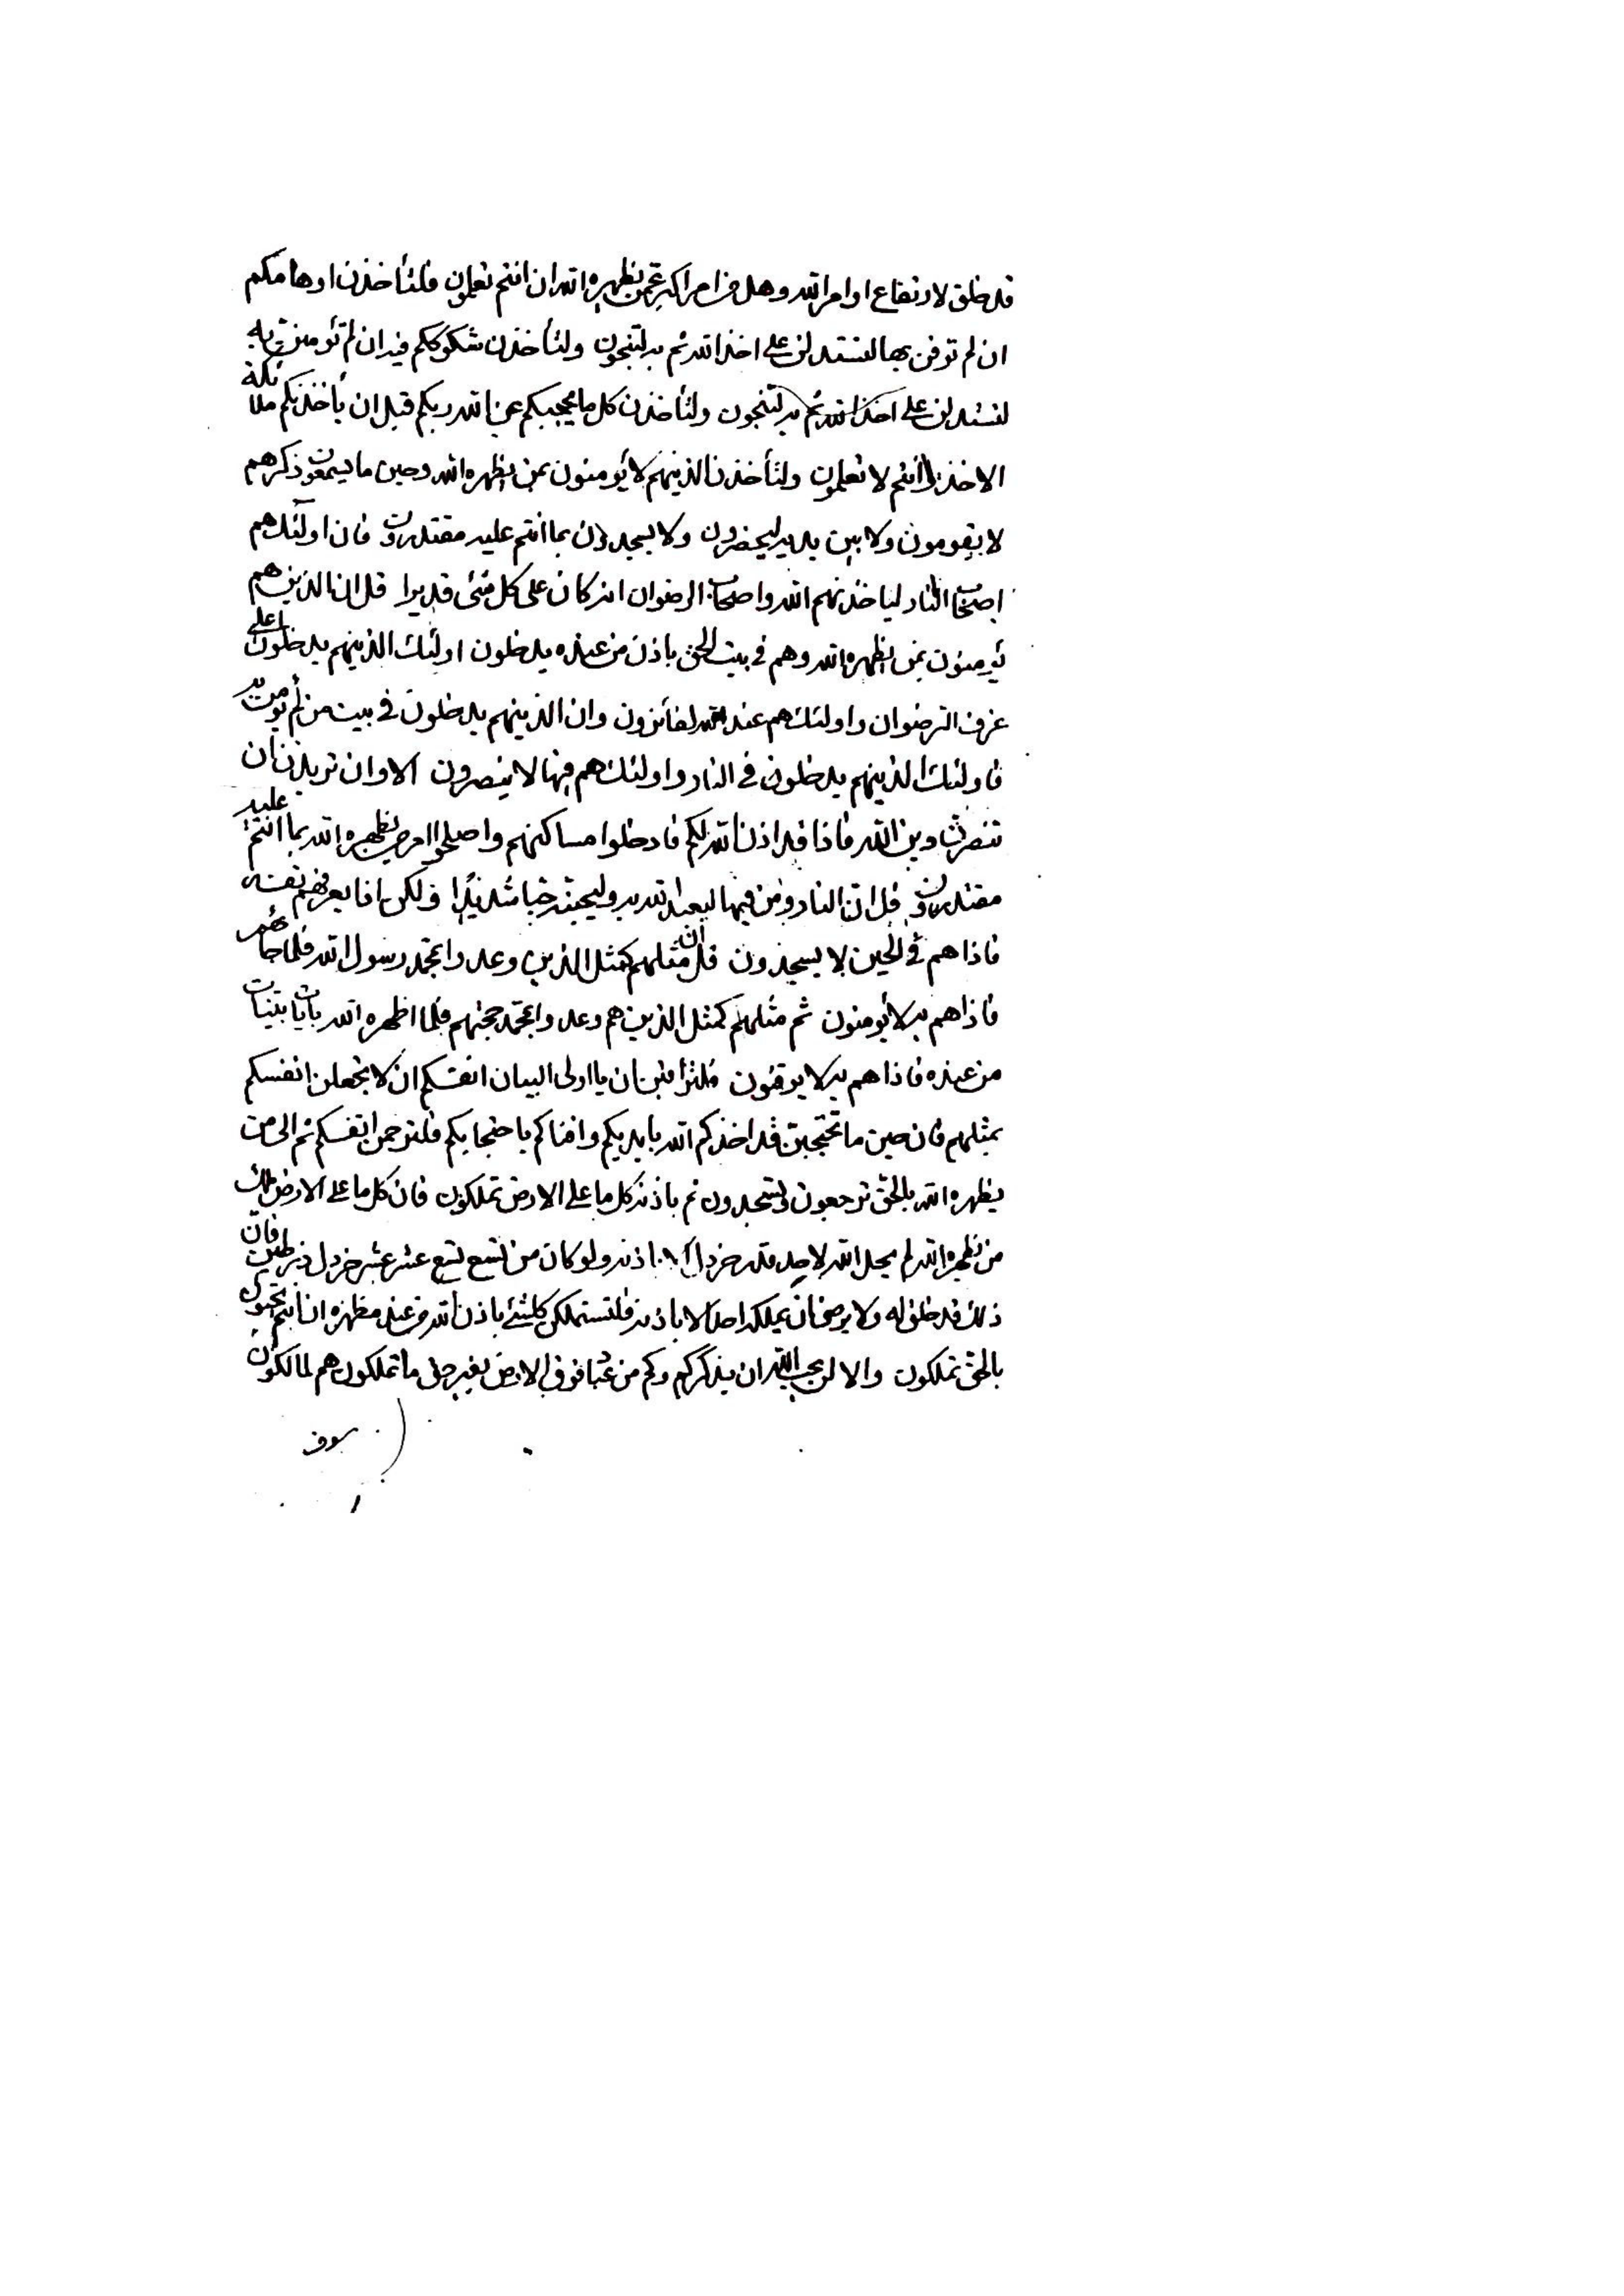 قد خلق لارتفاع اوامر الله وهل من امر اكبر عمن يظهره الله ان انتم تعلمون فلتأخذن اوهامكم
ان لم توقن بها لتستدلن على اخذ الله ثم به لتنجون ولتأخذن شكوككم فيه ان لم تؤمنن به
لتستدلن على اخذ الله ثم به لتنجون ولتأخذن كل ما يحجبكم عن الله ربكم قبل ان يأخذنكم ملائكة
الاخذ وانتم لا تعلمون ولتأخذن الذينهم لا يؤمنون بمن يظهره الله وحين ما يسمعون ذكرهم
لا يقومون ولا بين يديه ليحضرون ولا يسجدون بما انتم عليه مقتدرون فان اولئك هم
اصحاب النار لياخذنهم الله واصحاب الرضوان انه كان على كل شئ قديرا قل ان الذين هم
يؤمنون بمن يظهره الله وهم في بيت الحق باذن من عنده يدخلون اولئك الذينهم يدخلون اعلى
غرف الرضوان واولئك هم عند الله لفائزون وان الذينهم يدخلون في بيت من لم يؤمن به
فاولئك الذينهم يدخلون في النار واولئك هم فيها لا ينصرون الا وان تريدن ان
تنصرن دين الله فاذا قد اذن الله لكم فادخلوا مساكنهم واصلحوا امر من يظهره الله بما انتم عليه
مقتدرون قل ان النار ومن فيها ليعبد الله به وليحبنه حبا شديدا ولكن اذا يعرفهم نفسه
فاذا هم في الحين لا يسجدون قل ان مثلهم كمثل الذين وعدوا بمحمد رسول الله فلما جائهم
فاذا هم به لا يؤمنون ثم مثلهم كمثل الذين هم وعدوا بمحمد حجتهم فلما اظهره الله بايات بينات
من عنده فاذا هم به لا يوقنون فلتراقبن ان يا اولى البيان انفسكم ان لا تجعلن انفسكم
بمثلهم فان حين ما تحتجبن قد اخذكم الله بايديكم وافناكم باحتجابكم فلترحمن انفسكم ثم الى من
يظهره الله بالحق ترجعون ولتسجدون ثم باذنه كل ما على الارض تملكون فان كل ما على الارض ملك
من يظهره الله لم يحل الله لاحد قدر خردل الا باذنه ولو كان من تسع تسع عشر عشر خردل من طين فان
ذلك قد خلق له ولا يرضى ان يملكه احد الا باذنه فلتستملكن كلشئ باذن الله من عند مظهره ان انتم تحبون
بالحق تملكون والا لن يحب الله ان يذكركم وكم من عباد فوق الارض بغير حق ما تملكون هم لمالكون
سوف